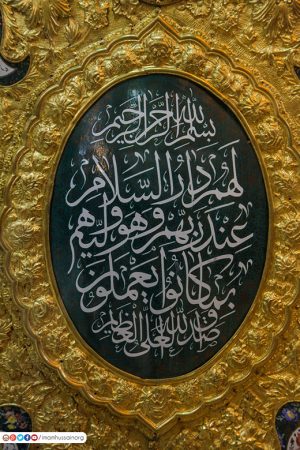 بسم الله الرحمن الرحيم
لهم دار السلام
عند ربهم وهو وليهم
بما كانوا يعملون
صدق الله العلي العظيم
/imamhussainorg